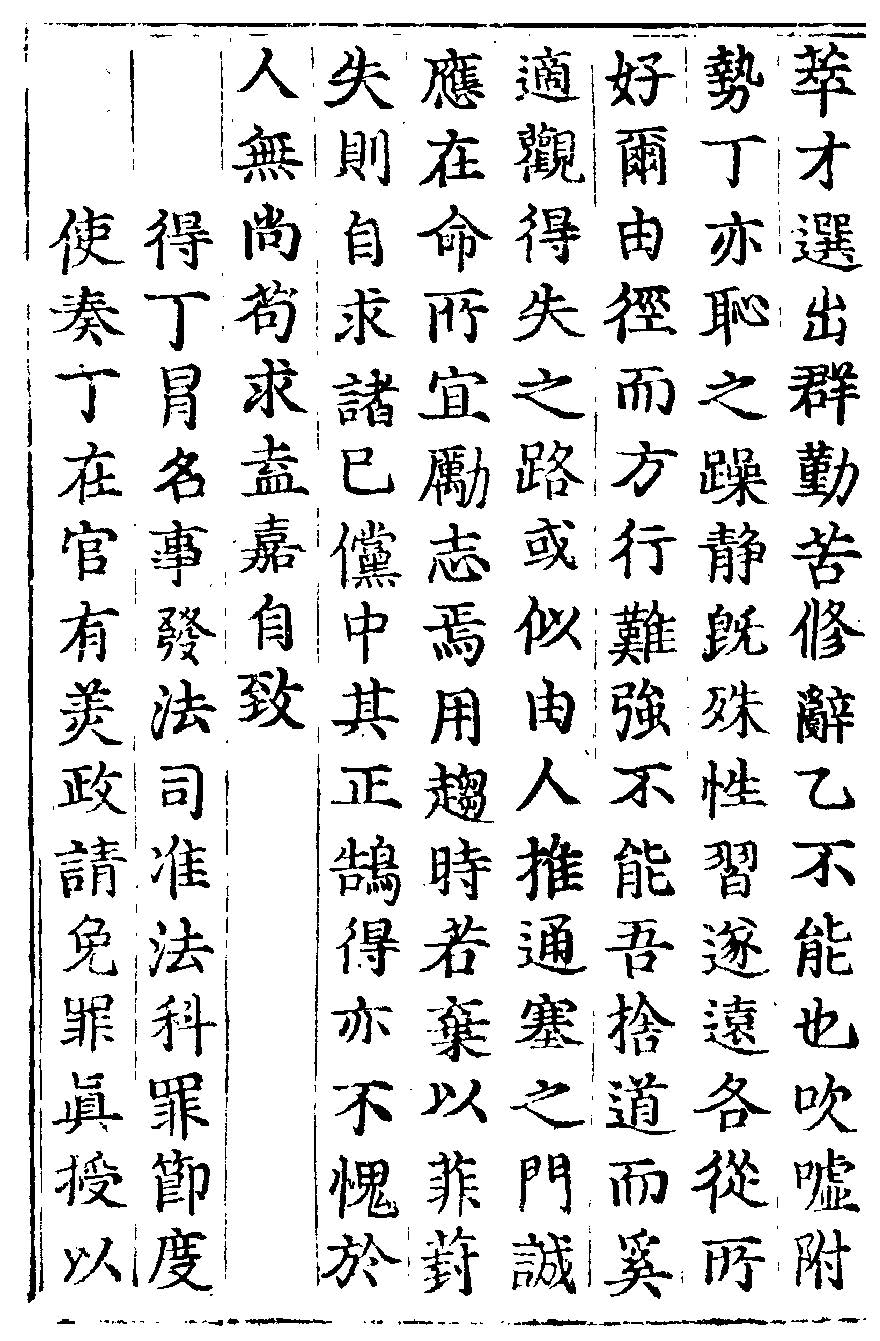 萃才選出群勤苦修辭乙不能也吹噓附
勢丁亦恥之躁静旣殊性習遂遠各從所
好爾由徑而方行難強不能吾捨道而奚
適觀得失之路或似由人推通塞之門誠
應在命所宜勵志焉用趨時若棄以菲葑
失則自求諸已儻中其正鵠得亦不愧於
人無尚茍求盍嘉自致
得丁冐名事發法司准法科罪節度
使奏丁在官有美政請免罪眞授以